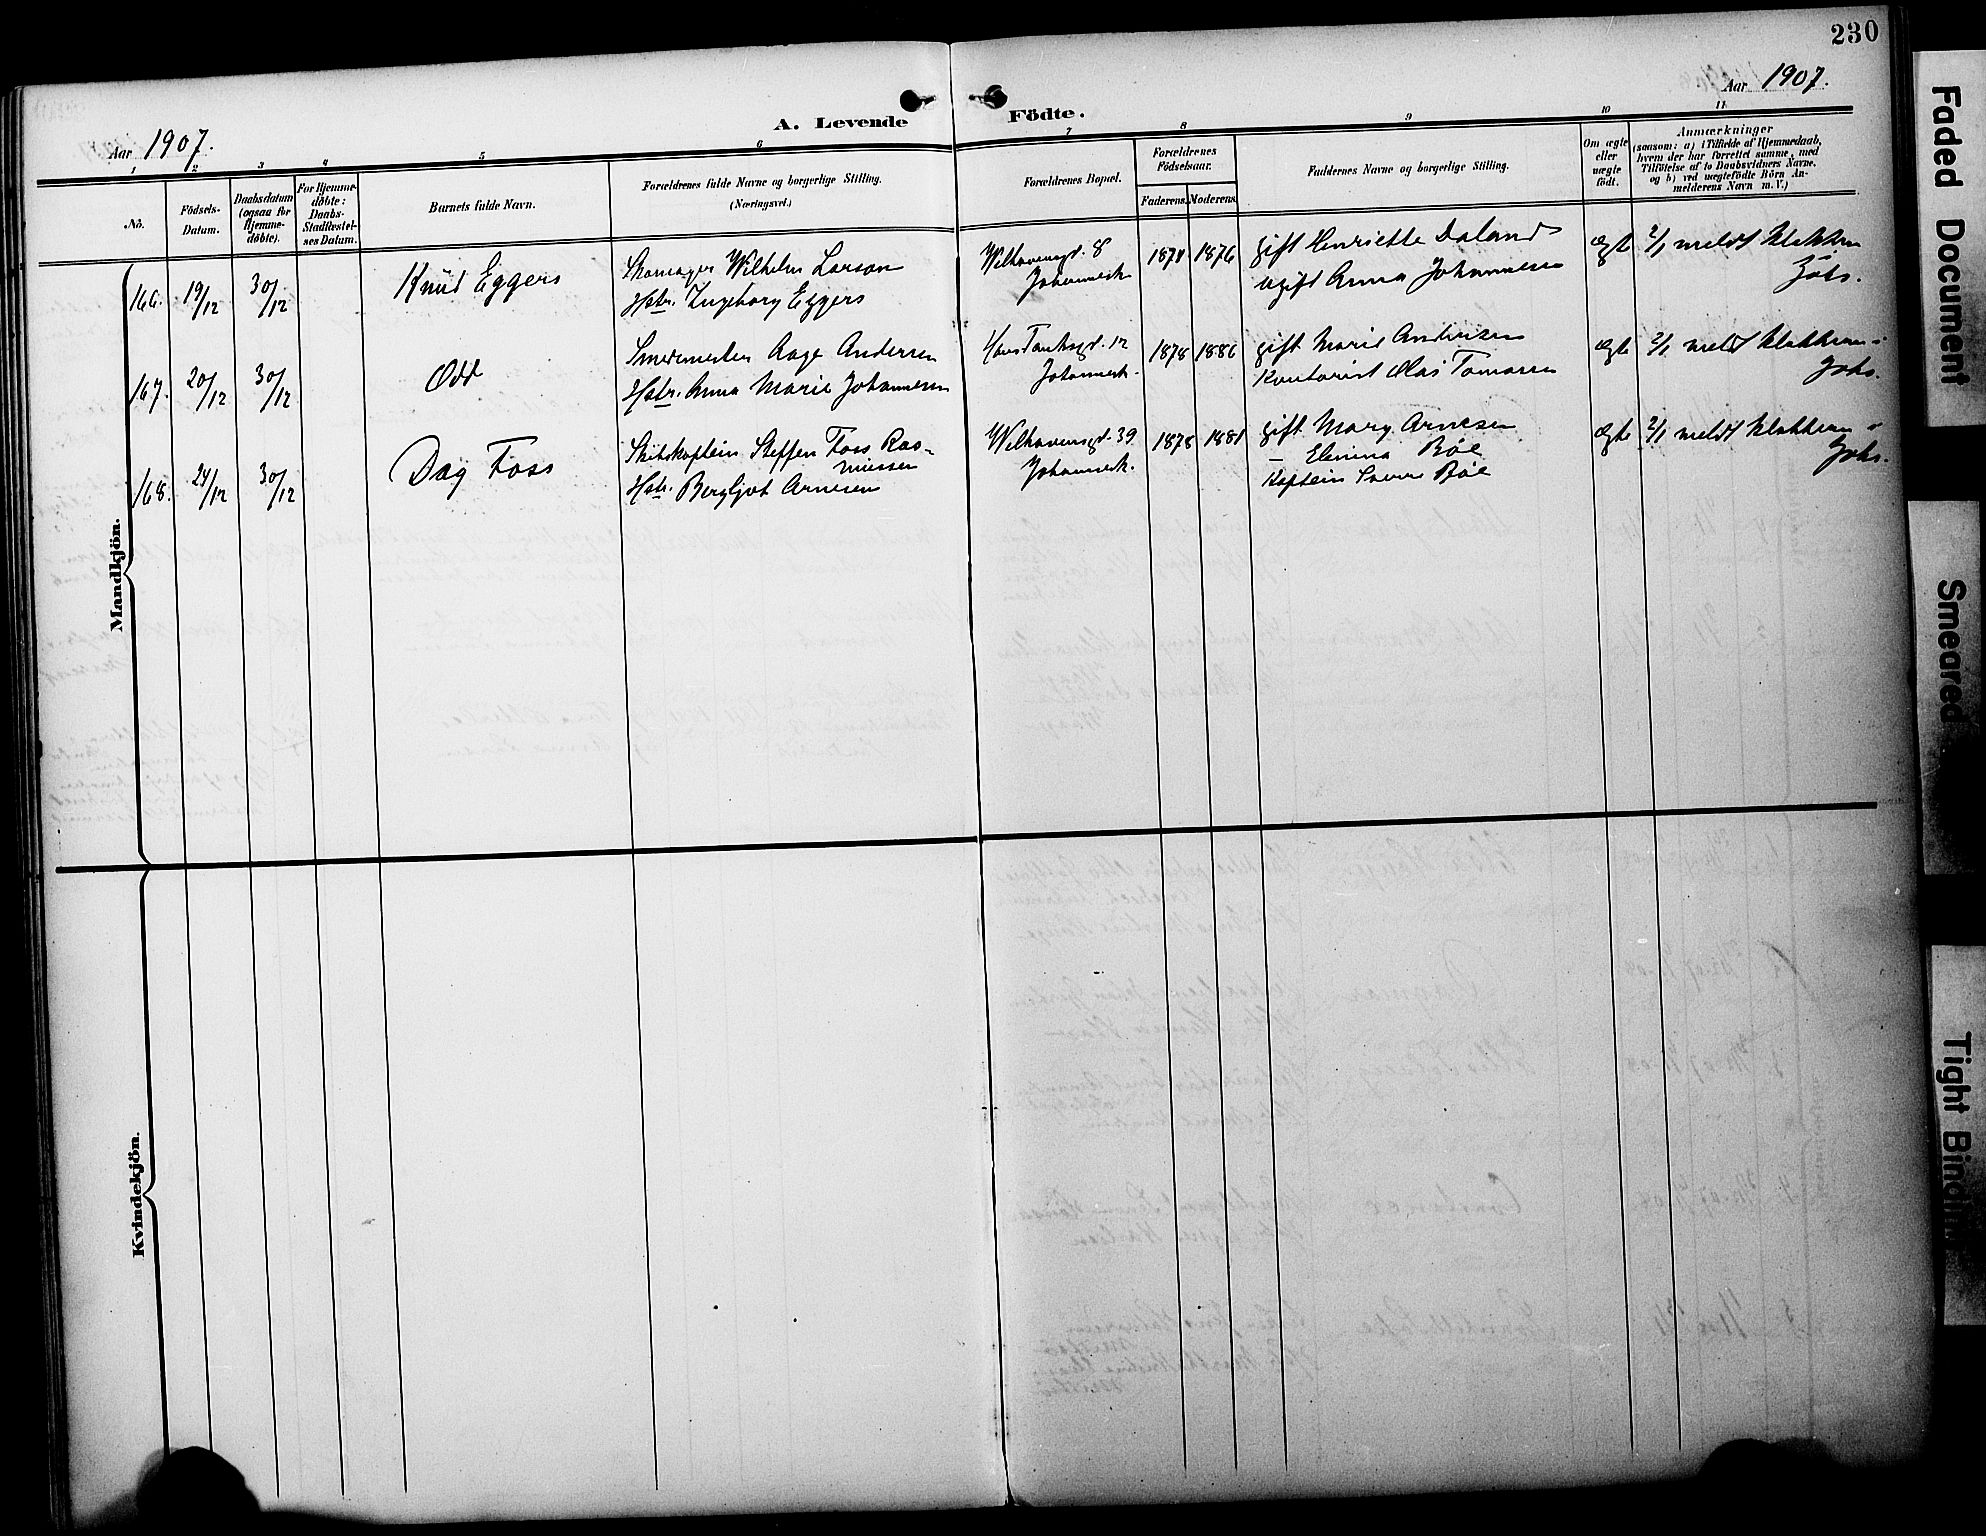 230
Aar 1907.
Aar 1907.
A. Levende Födte.
1 2 3 4 5 6 7 8 9 10 11
No.
Födsels-
Datum.
Daabsdatum
(ogsaa for
Hjemme-
döbte).
For Hjemme-
döbte:
Daabs-
Stadfestel-
ses Datum.
Barnets fulde Navn.
Forældrenes fulde Navne og borgerlige Stilling.
(Næringsvei.)
Forældrenes Bopæl.
Forældrenes
Födselsaar.
Faderens. Moderens.
Faddernes Navne og borgerlige Stilling.
Om ægte
eller
uægte
födt.
Anmærkninger
(saasom: a) i Tilfælde af Hjemmedaab,
hvem der har forrettet samme, med
Tilföielse af to Daabsvidners Navne,
og b) ved uægtefödte Börn An-
melderens Navn m. V.)
Mandkjön.
166. 19/12 30/12 Knud Eggers
Skomager Wilhelm Larsen
Hstr. Ingeborg Eggers
Welhavensgt. 8
Johannesk.
1874 1876
gift Henriette Daland
ugift Anna Johannesen
ægte
2/1 meldt Klokkeren
Johs.
167. 20/12 30/12 Odd
Smedmester Aage Andersen
Hstr. Anna Marie Johannesen
Hans Tanksgt. 12
Johannesk.
1878 1886
gift Marie Andersen
Kontorist Olas Tomasen
ægte
2/1 meldt Klokkeren i
Johs.
168. 24/12 30/12 Dag Foss
Skibskaptein Steffen Foss Ras-
mussen
Hstr. Bergljot Arnesen
Welhavensgt. 39
Johannesk.
1878 1881
gift Mary Arnesen
— Elenina Böe
Kaptein Sverre Böe
ægte
2/1 meldt Klokkeren i
Johs.
Kvindekjön.
Faded Document
Smeared
Tight Bindin